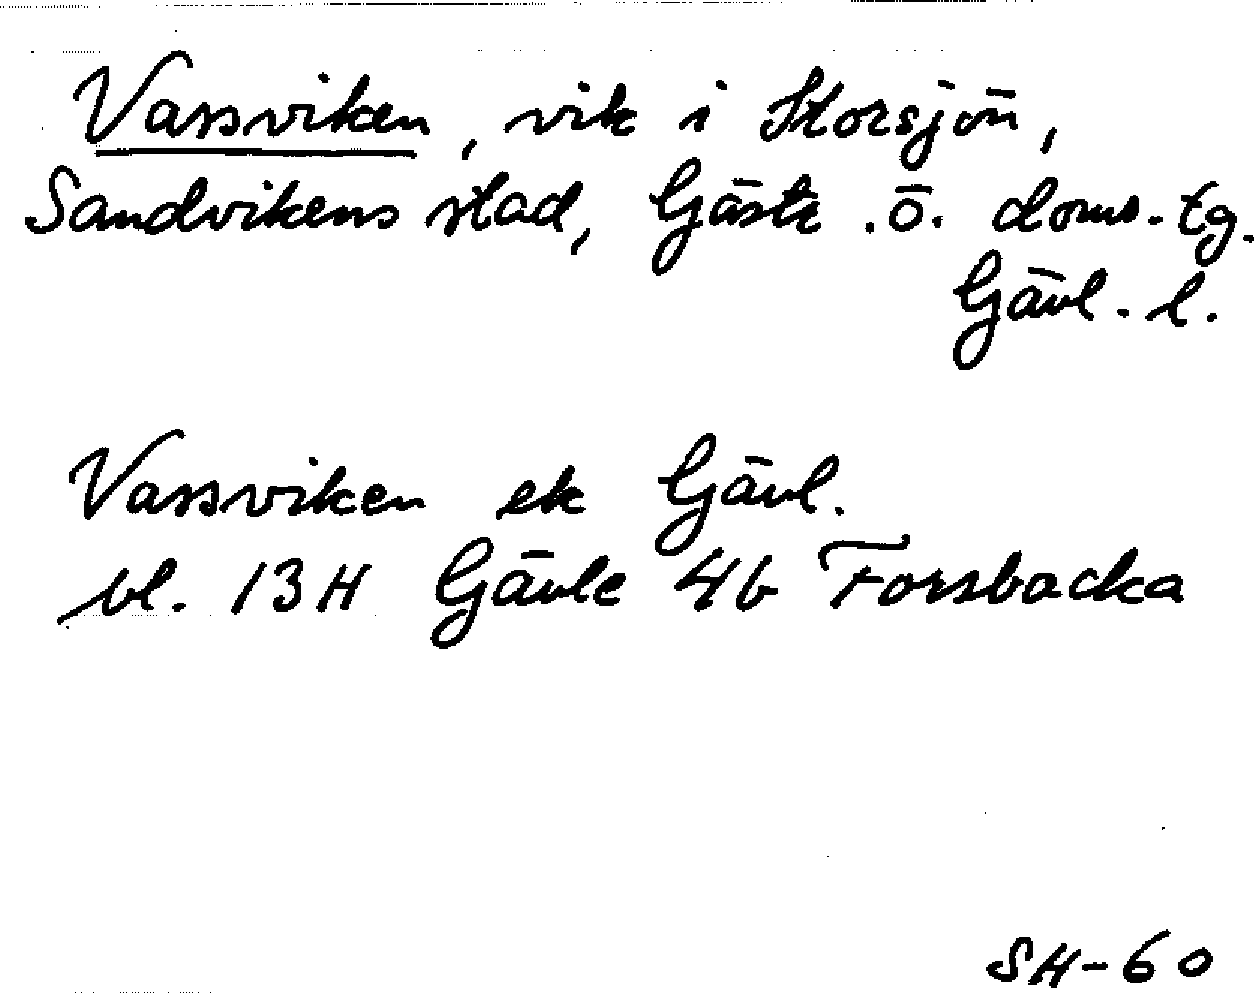 Vassviken, vik i Storsjön,
Sandvikens stad, Gästr. ö. doms.tg.
Gävl. l.
Vassviken ek Gävl.
bl. 13H Gävle 4b Forsbacka
SH-60